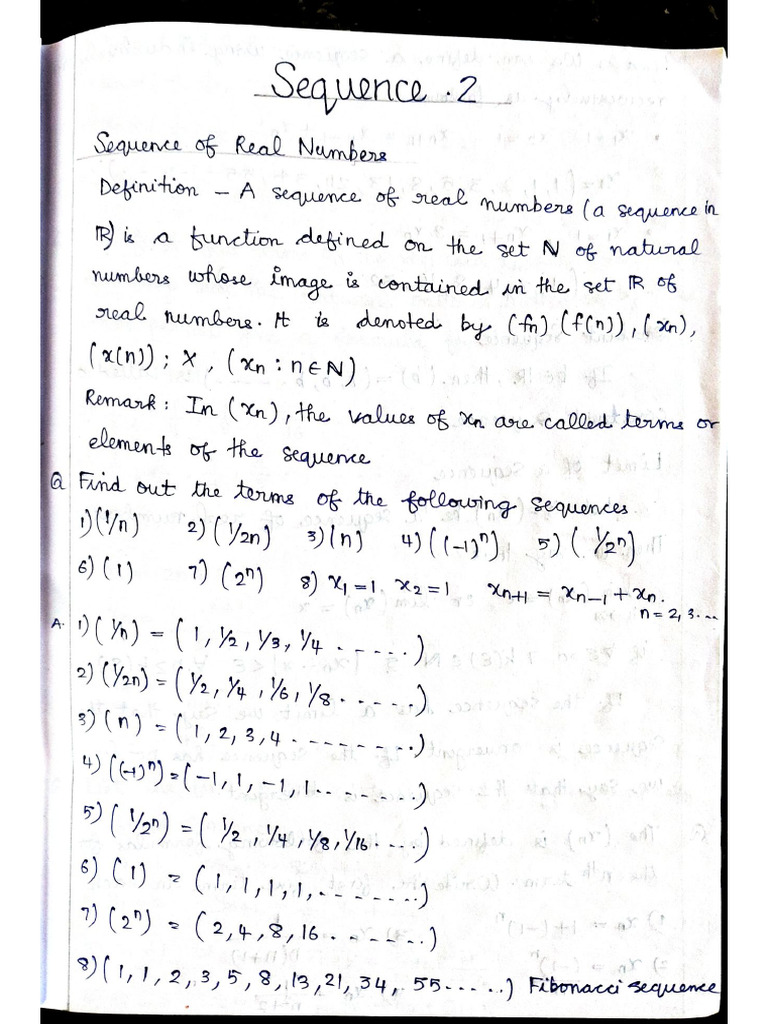 Sequence . 2
Sequence of Real Numbers
Definition – A sequence of real numbers (a sequence in
ℝ) is a function defined on the set ℕ of natural
numbers whose image is contained in the set ℝ of
real numbers. It is denoted by (fn) (f(n)), (xn),
(x(n)); X, (xn : n ∈ ℕ)
Remark : In (xn), the values of xn are called terms or
elements of the sequence
Q Find out the terms of the following sequences
1) (1/n) 2) (1/2n) 3) (n) 4) ((-1)ⁿ) 5) (1/2ⁿ)
6) (1) 7) (2ⁿ) 8) x₁ = 1, x₂ = 1 xₙ₊₁ = xₙ₋₁ + xₙ.
n = 2, 3 ...
A. 1) (1/n) = (1, 1/2, 1/3, 1/4 ......)
2) (1/2n) = (1/2, 1/4, 1/6, 1/8 ......)
3) (n) = (1, 2, 3, 4 .........)
4) ((-1)ⁿ) = (-1, 1, -1, 1 ........)
5) (1/2ⁿ) = (1/2, 1/4, 1/8, 1/16 .....)
6) (1) = (1, 1, 1, 1, ........)
7) (2ⁿ) = (2, 4, 8, 16 .......)
8) (1, 1, 2, 3, 5, 8, 13, 21, 34, 55 ......) Fibonacci sequence